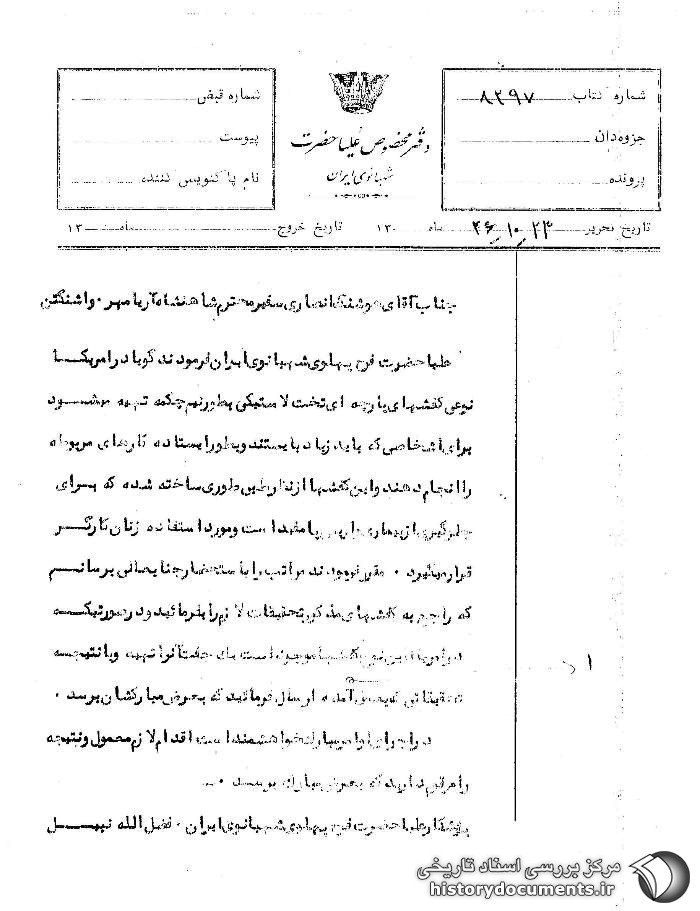 شماره کتاب ۸۲۹۷
جزوه‌دان
پرونده
دفتر مخصوص علیاحضرت
شهبانوی ایران
شماره قبض
پیوست
نام پاکنویس کننده
تاریخ تحریر ۲۳ ر ۱۰ ر ۴۶ ماه ۱۳۰ تاریخ خروج ماه ۱۳۰
جناب آقای هوشنگ انصاری سفیر محترم شاهنشاه آریا مهر ۰ واشنگتن
علیا حضرت فرح پهلوی شهبانوی ایران فرمودند گویا در امریکا
نوعی کفشهای پارچه ای تخت لاستیکی بطور نیم چکمه تهیه میشود
برای اشخاصی که باید زیاد بایستند و بطور ایستاده کارهای مربوطه
را انجام دهند و این کفشها از نظر طبی طوری ساخته شده که برای
جلوگیری از بیماری واریس پا مفید است و مورد استفاده زنان کارگر
قرار میگیرد ۰ مقرر فرمودند مراتب را باستحضار جنابعالی برسانم
که راجع به کفشهای مذکور تحقیقات لازم را بفرمائید و در صورتیکه
در امریکا این نوع کفشها موجود است یک جفت آنرا تهیه و با نتیجه
تحقیقاتی که بعمل آمده ارسال فرمائید که بعرض مبارکشان برسد ۰
در اجرای اوامر مبارک خواهشمند است اقدام لازم معمول و نتیجه
را مرقوم دارید که بعرض مبارک برسد ۰
پیشکار علیا حضرت فرح پهلوی شهبانوی ایران ۰ فضل الله نبیل
۱
مرکز بررسی اسناد تاریخی
historydocuments.ir